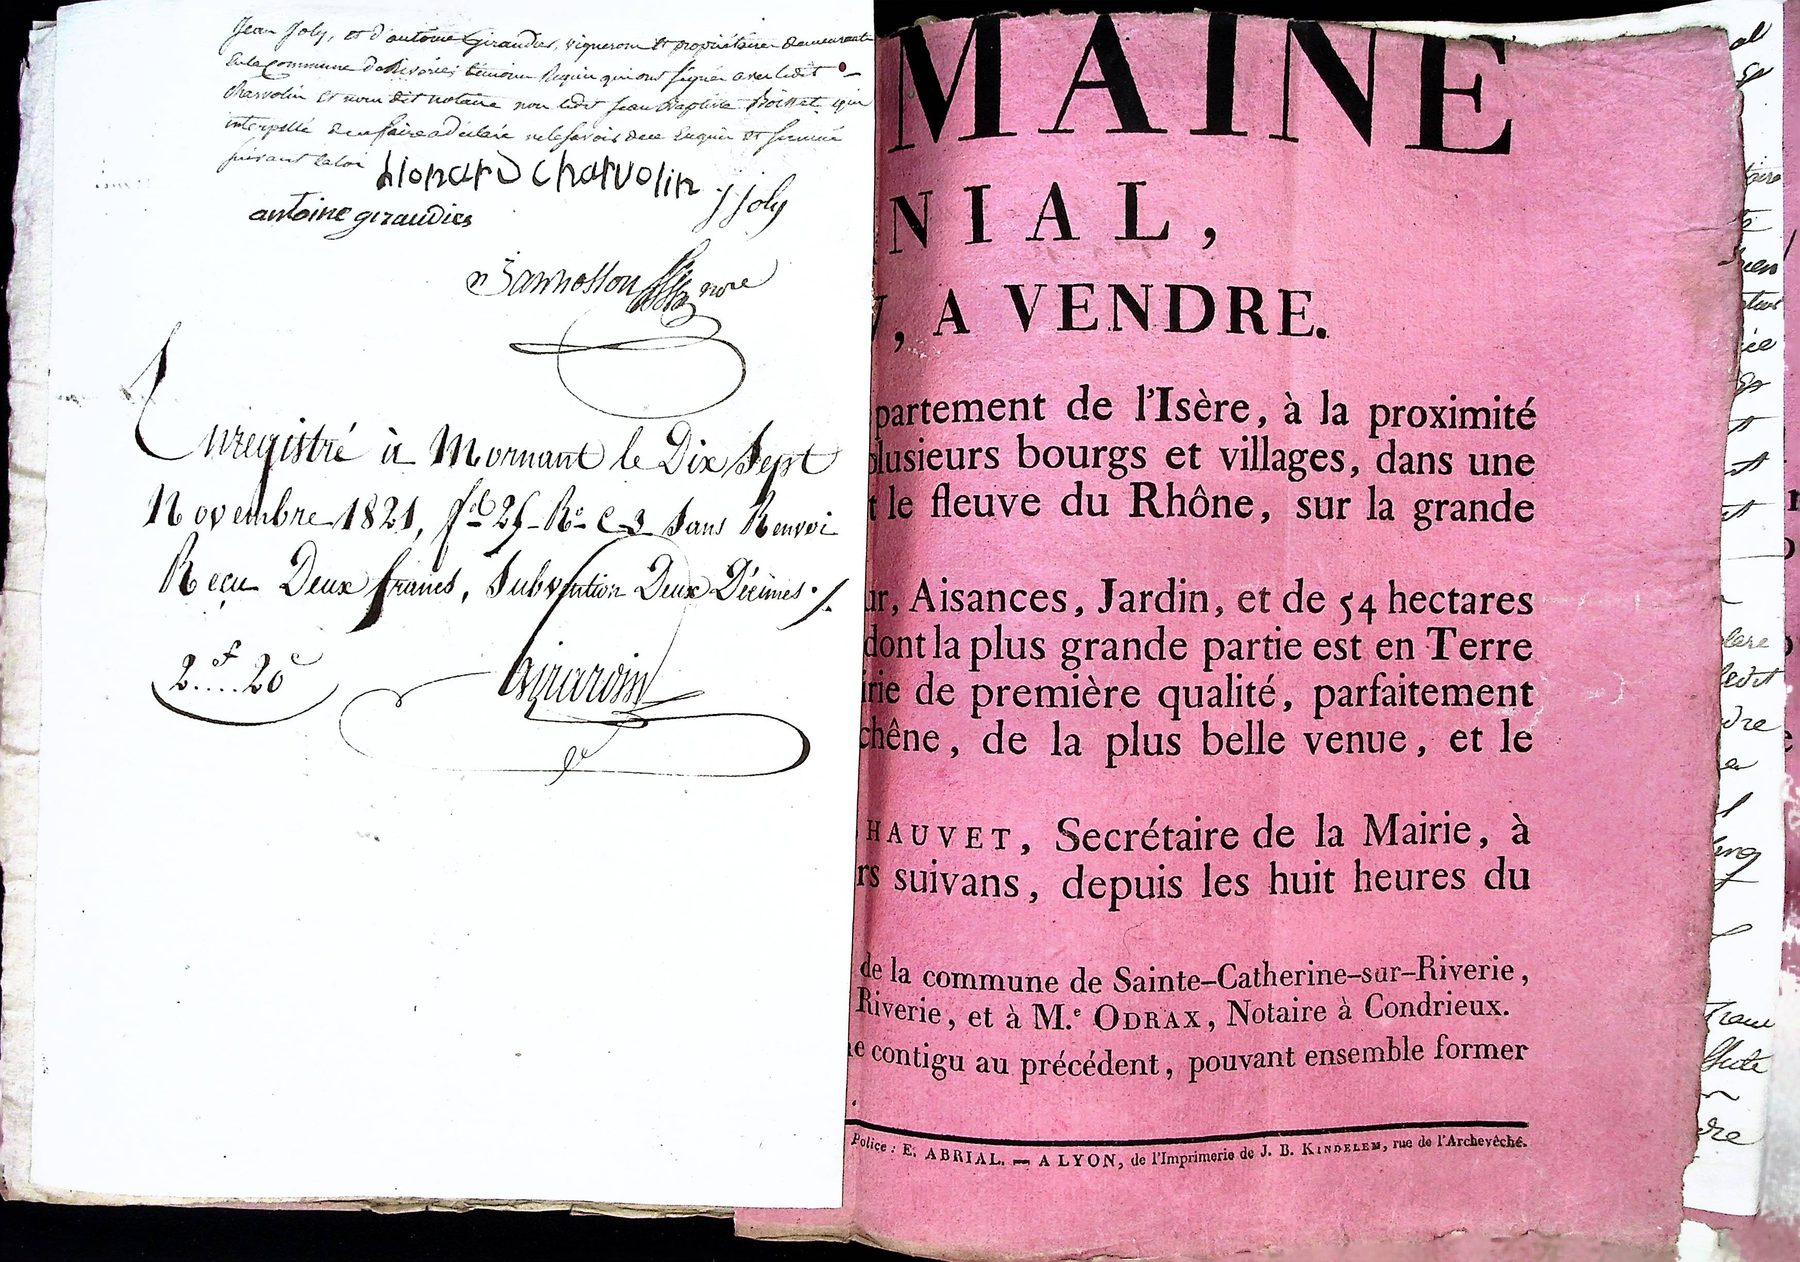 Jean Joly, et d'antoine Giraudier, vignerons et propriétaires demeurants
en la commune de Riverie témoins Requis qui ont signés avec ledit
Charvolin et nous dit notaire non ledit Jean Baptiste Boisset qui
interpellé de ce faire a déclaré ne le savoir de ce Enquis et sommé
suivant la loi
Lionard Charvolin
antoine giraudier
J Joly
nore
Enregistré à Mornant le Dix Sept
Novembre 1821, fol 25 Ro C 3 Sans Renvoi
Reçu Deux francs, Subvention Deux Décimes ./.
2.f....20c
Girardin
MAINE
NIAL,
, A VENDRE.
partement de l'Isère, à la proximité
plusieurs bourgs et villages, dans une
t le fleuve du Rhône, sur la grande
ur, Aisances, Jardin, et de 54 hectares
dont la plus grande partie est en Terre
rie de première qualité, parfaitement
chêne, de la plus belle venue, et le
HAUVET, Secrétaire de la Mairie, à
rs suivans, depuis les huit heures du
de la commune de Sainte-Catherine-sur-Riverie,
Riverie, et à M.e ODRAX, Notaire à Condrieux.
e contigu au précédent, pouvant ensemble former
Police : E. ABRIAL. — A LYON, de l'Imprimerie de J. B. KINDELEM, rue de l'Archevêché.